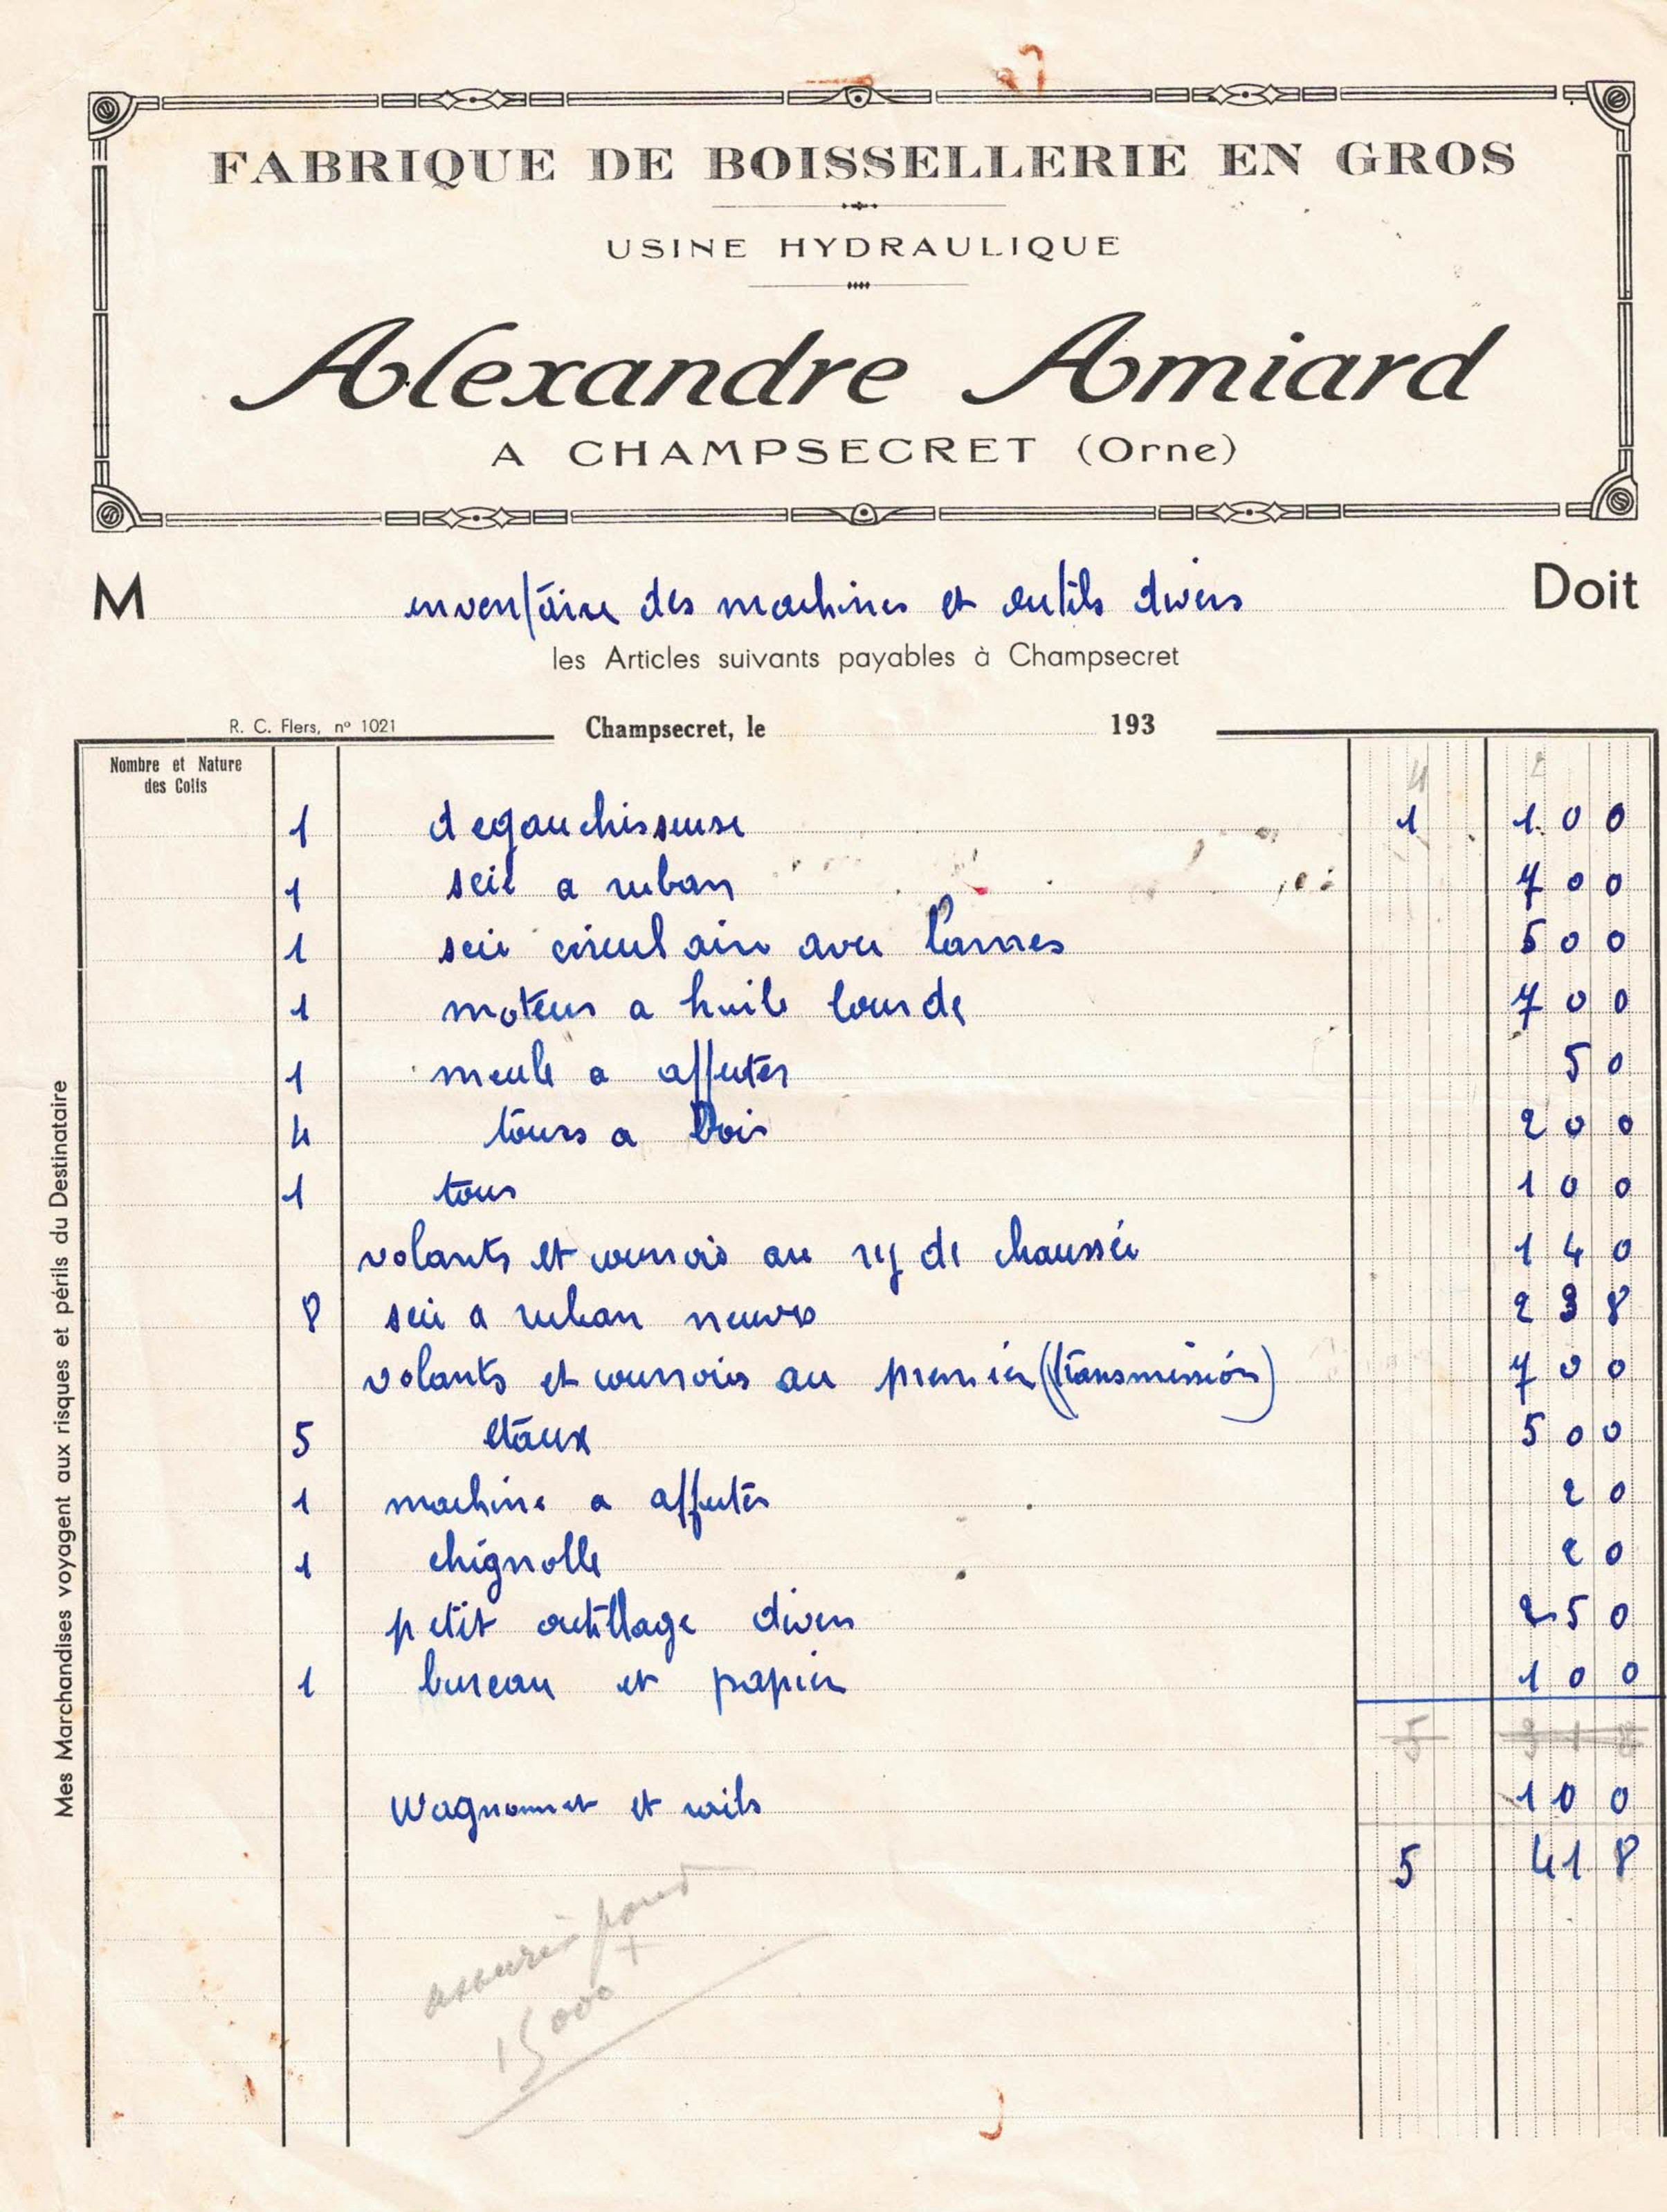 FABRIQUE DE BOISSELLERIE EN GROS
USINE HYDRAULIQUE
Alexandre Amiard
A CHAMPSECRET (Orne)
M inventaire des machines et outils divers Doit
les Articles suivants payables à Champsecret
R. C. Flers, nº 1021 Champsecret, le 193
Nombre et Nature
des Colis
4 2
1 degauchisseuse 1 100
1 scie a ruban 700
1 scie circulaire avec lames 500
1 moteur a huile lourde 700
1 meule a affuter 50
4 tours a bois 200
1 tour 100
volants et courroies au rez de chaussée 140
8 scie a ruban neuves 238
volants et courroies au premier (transmission) 700
5 etaux 500
1 machine a affuter 20
1 chignolle 20
petit outillage divers 250
1 bureau et papier 100
5 318
Wagonnet et rails 100
5 418
assurés pour
15000
Mes Marchandises voyagent aux risques et périls du Destinataire